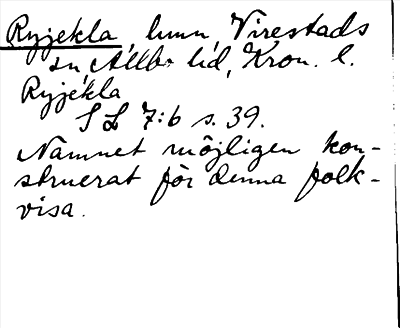 Ryjekla, hmn, Virestads
sn, Allbo hd, Kron. l.
Ryjekla
S L 7:6 s. 39.
Namnet möjligen kon-
struerat för denna folk-
visa.